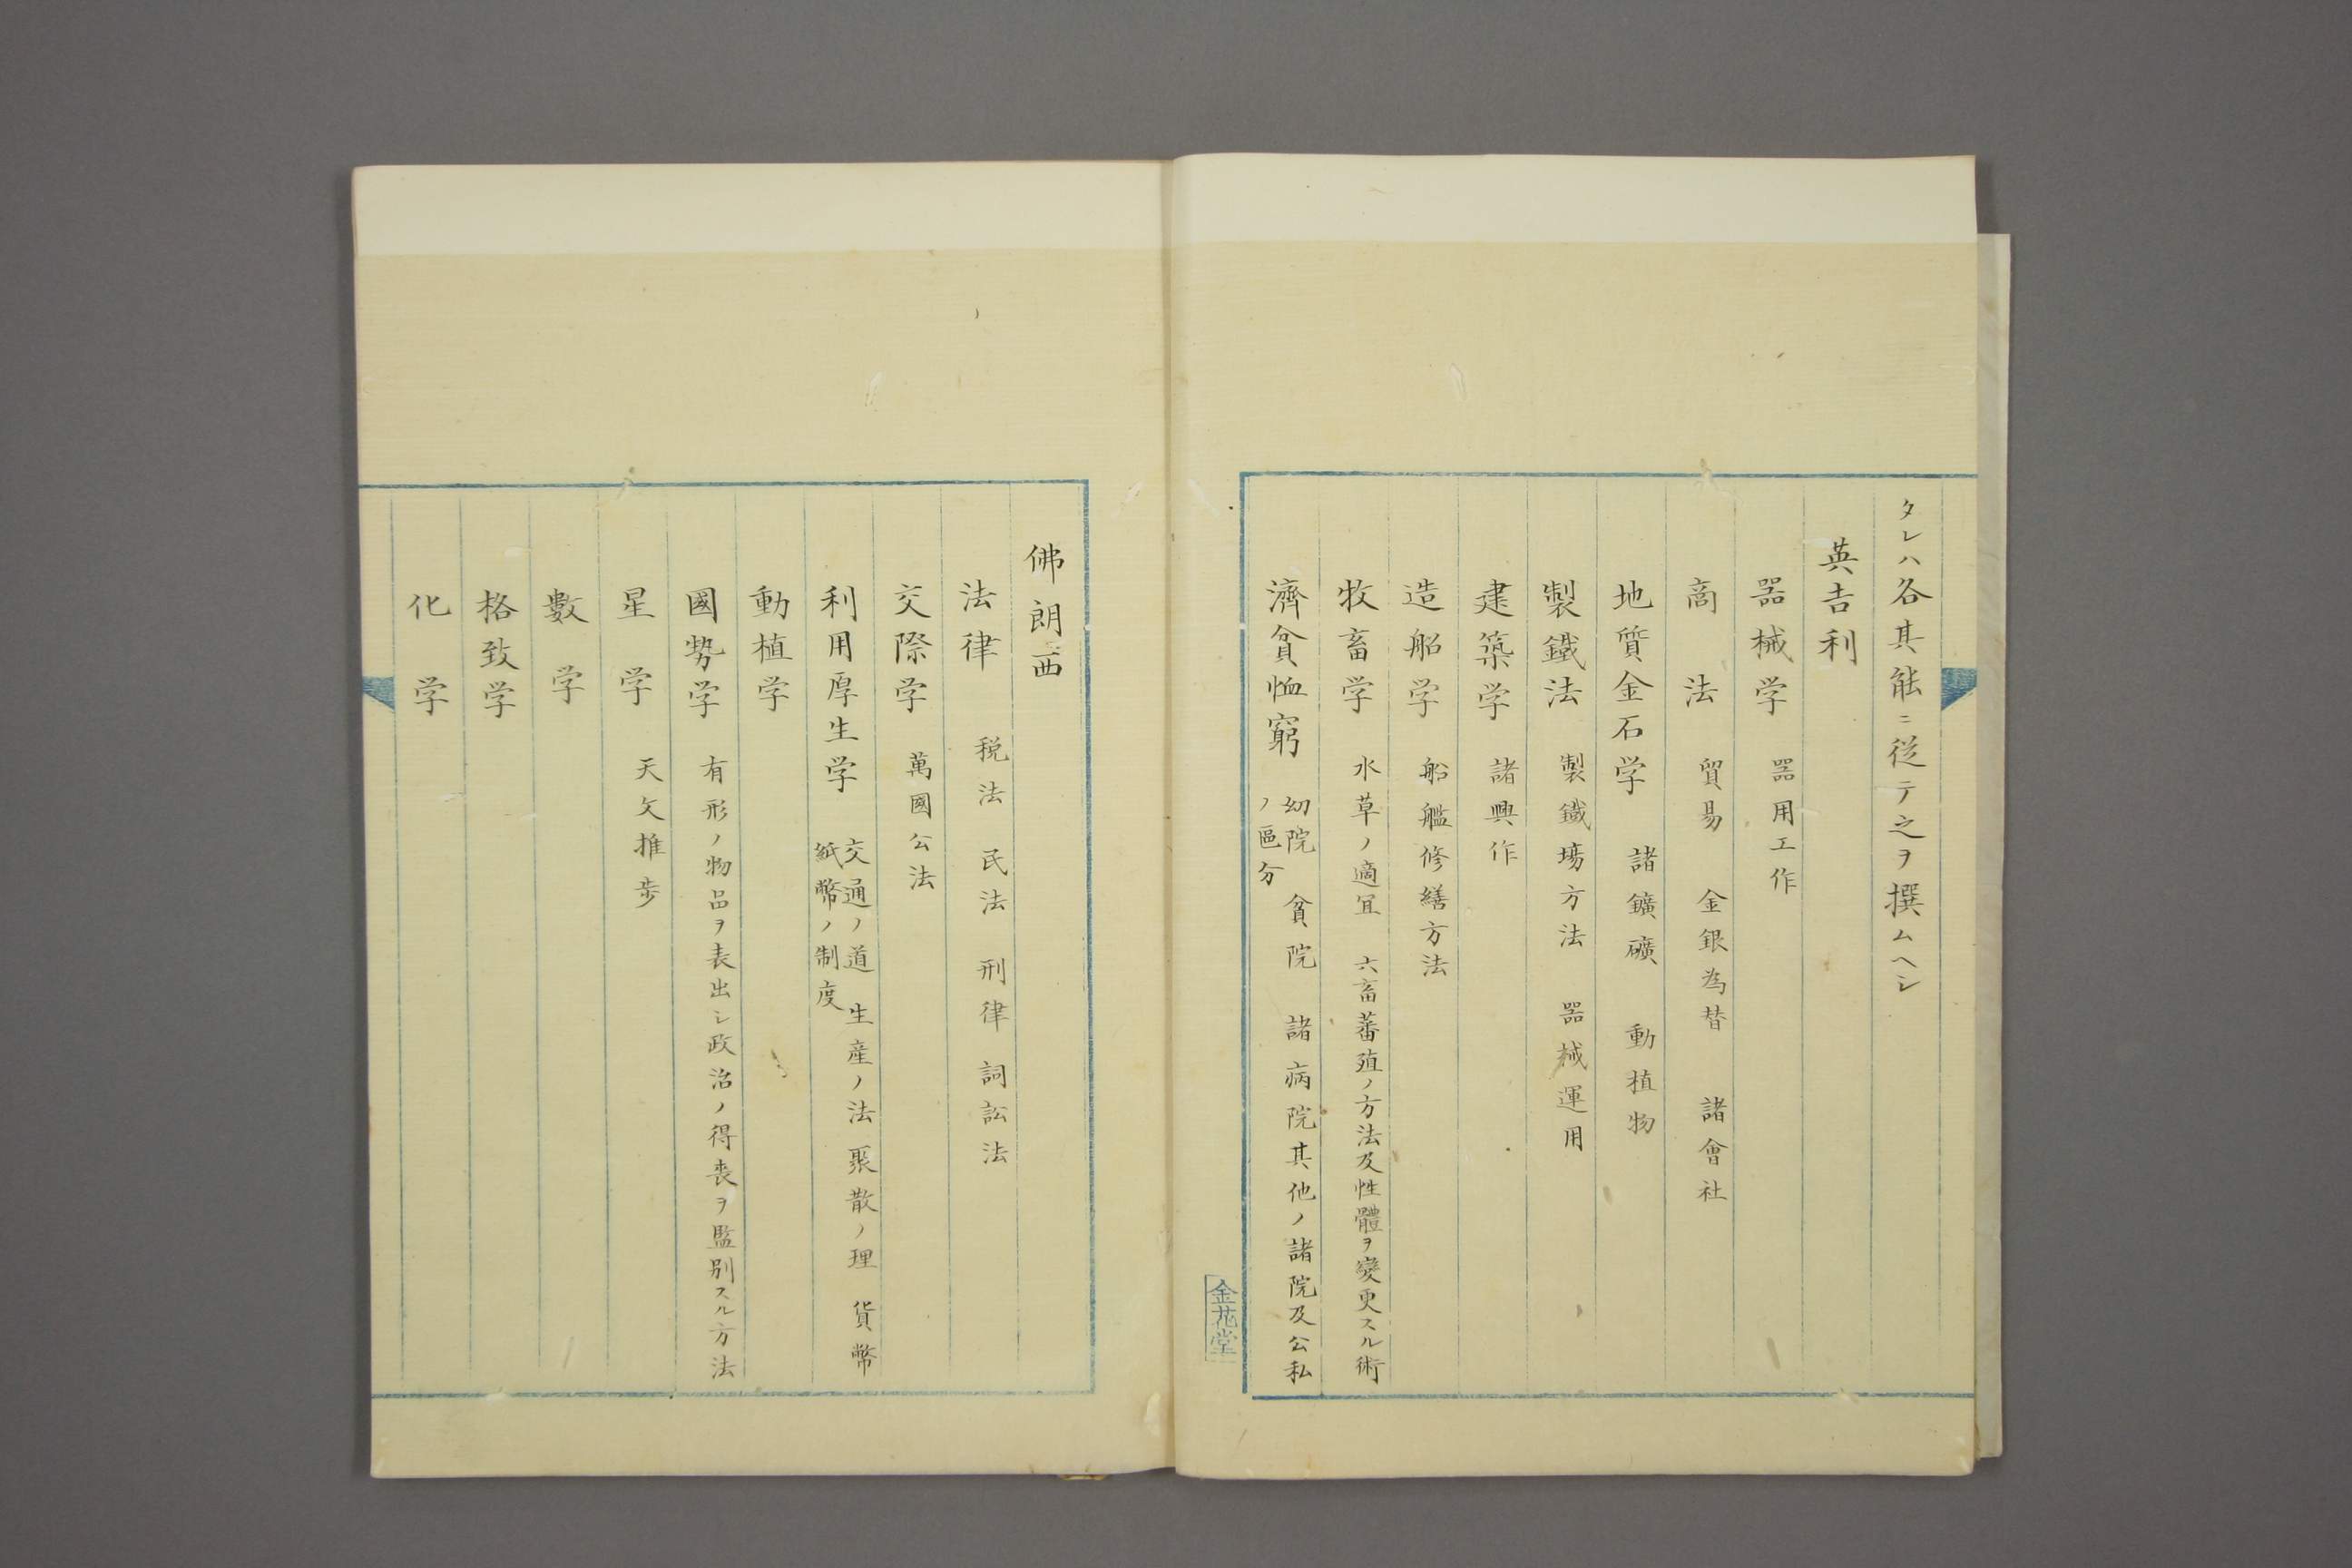 タレハ各其能ニ従テ之ヲ撰ムヘシ
英吉利
器械学 器用工作
商法 貿易 金銀為替 諸會社
地質金石学 諸鑛礦 動植物
製鐵法 製鐵場方法 器械運用
建築学 諸興作
造船学 船艦修繕方法
牧畜学 水草ノ適冝 六畜蕃殖ノ方法及性體ヲ變更スル術
濟貧恤窮 幼院 貧院 諸病院其他ノ諸院及公私
ノ區分
金花堂
佛朗西
法律 税法 民法 刑律 詞訟法
交際学 萬國公法
利用厚生学 交通ノ道 生産ノ法 聚散ノ理 貨幣
紙幣ノ制度
動植学
國勢学 有形ノ物品ヲ表出シ政治ノ得喪ヲ監別スル方法
星学 天文推歩
數学
格致学
化学